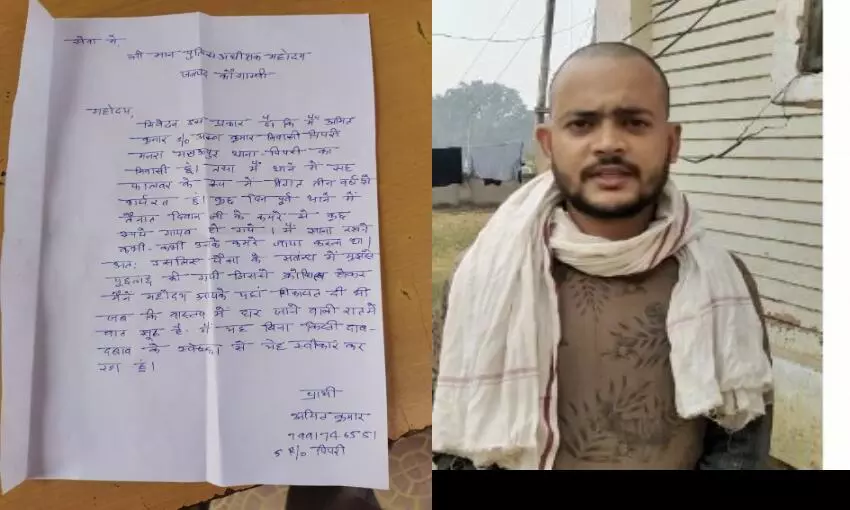 सेवा में,
श्री मान पुलिस अधीक्षक महोदय
जनपद कौशाम्बी
महोदय,
निवेदन इस प्रकार है कि मैं अमित
कुमार S/o कुमार निवासी पिपरी
थाना-पिपरी का
निवासी हूं। तथा मैं थाने में सह
फालवर के रूप में विगत तीन वर्ष से
कार्यरत हूं। कुछ दिन पूर्व थाने में
तैनात दिवान जी के कमरे से कुछ
रूपये गायब हो गये। मैं खाना रखने
कभी-कभी उनके कमरे जाया करता था।
अतः इसलिए पैसा के सम्बन्ध में मुझसे
पूछताछ की गयी जिससे होकर
मैंने महोदय आपके यहां शिकायत दी थी
जब कि वास्तव में मार जाने वाली
बात झूठ है। मैं यह बिना किसी दाब-
दबाव के स्वेच्छा से यह स्वीकार कर
रहा हूं।
प्रार्थी
अमित कुमार
R/o पिपरी